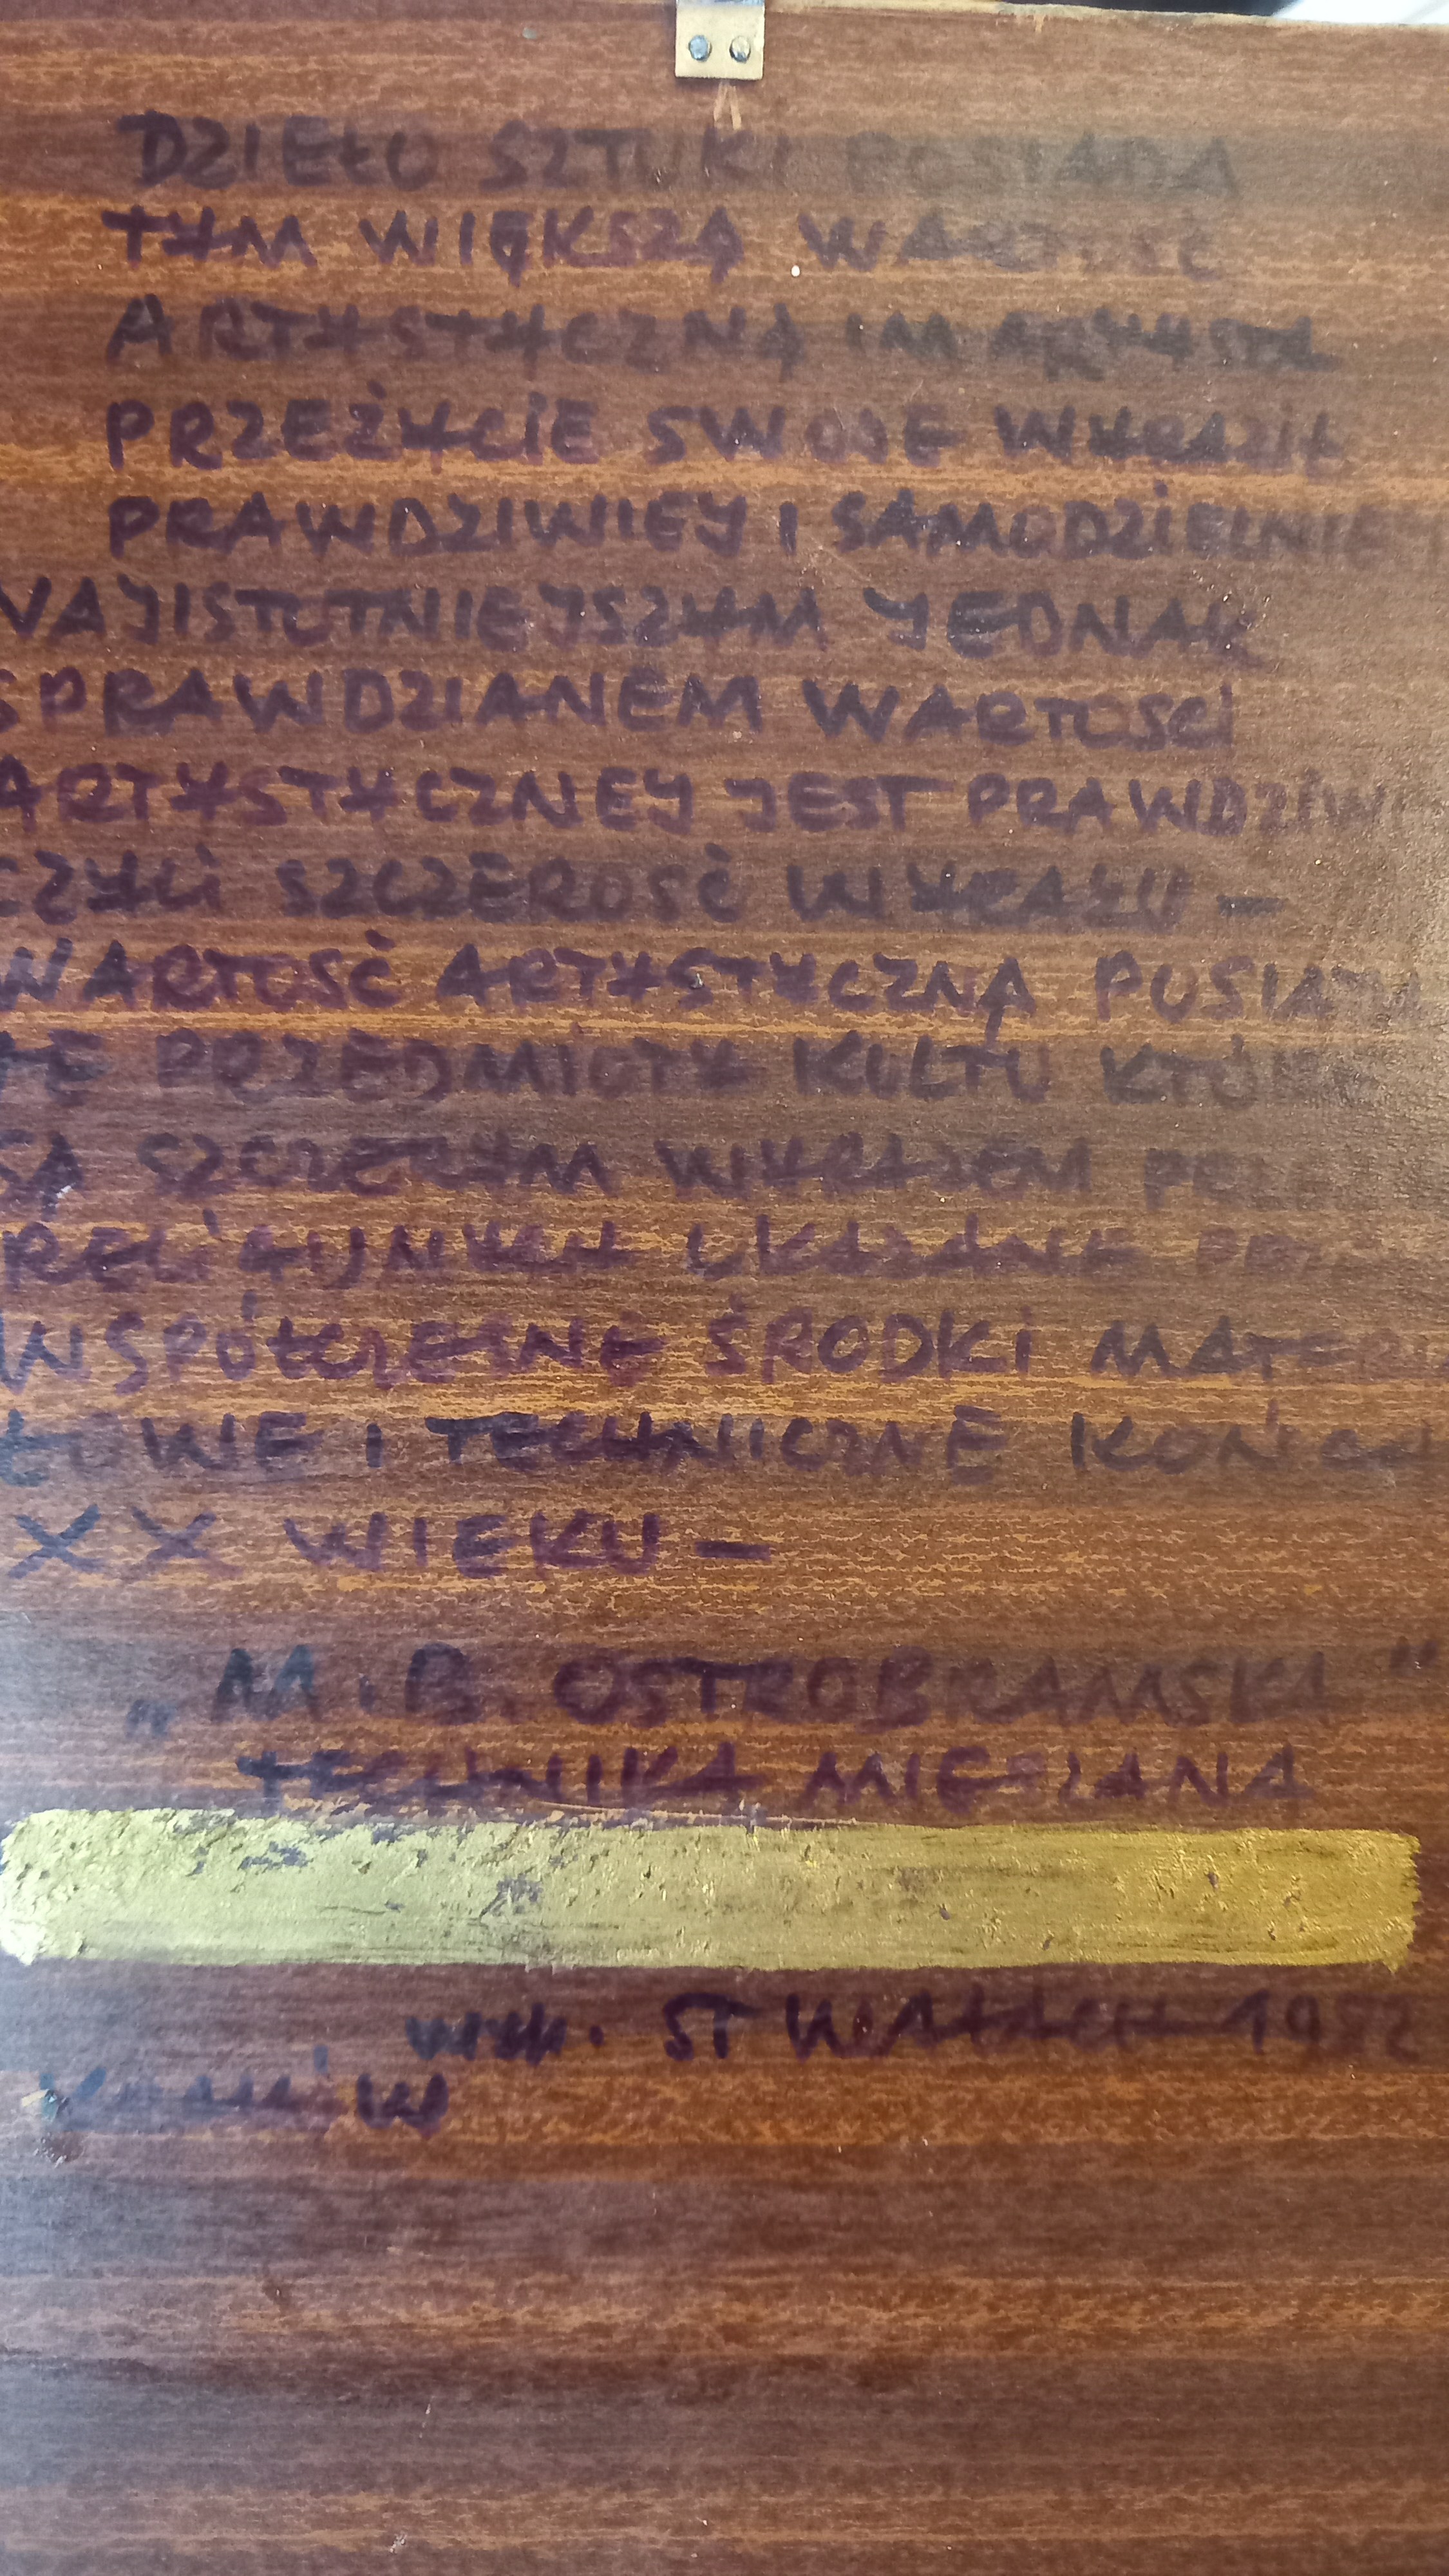 DZIEŁO SZTUKI POSIADA
TYM WIĘKSZĄ WARTOŚĆ
ARTYSTYCZNĄ IM ARTYSTA
PRZEŻYCIE SWOJE WYRAZIŁ
PRAWDZIWIEJ I SAMODZIELNIE
NAJISTOTNIEJSZYM JEDNAK
SPRAWDZIANEM WARTOŚCI
ARTYSTYCZNEJ JEST PRAWDZIW
CZYLI SZCZEROŚĆ WYRAZU –
WARTOŚĆ ARTYSTYCZNĄ POSIADA
TE PRZEDMIOTY KULTU KTÓR
SĄ SZCZERYM WYRAZEM
RELIGIJNYCH
WSPÓŁCZESNE ŚRODKI MATERIA
ŁOWE I TECHNICZNE KOŃCA
XX WIEKU –
„M.B. OSTROBRAMSKA"
TECHNIKA MIESZANA
ST 1982